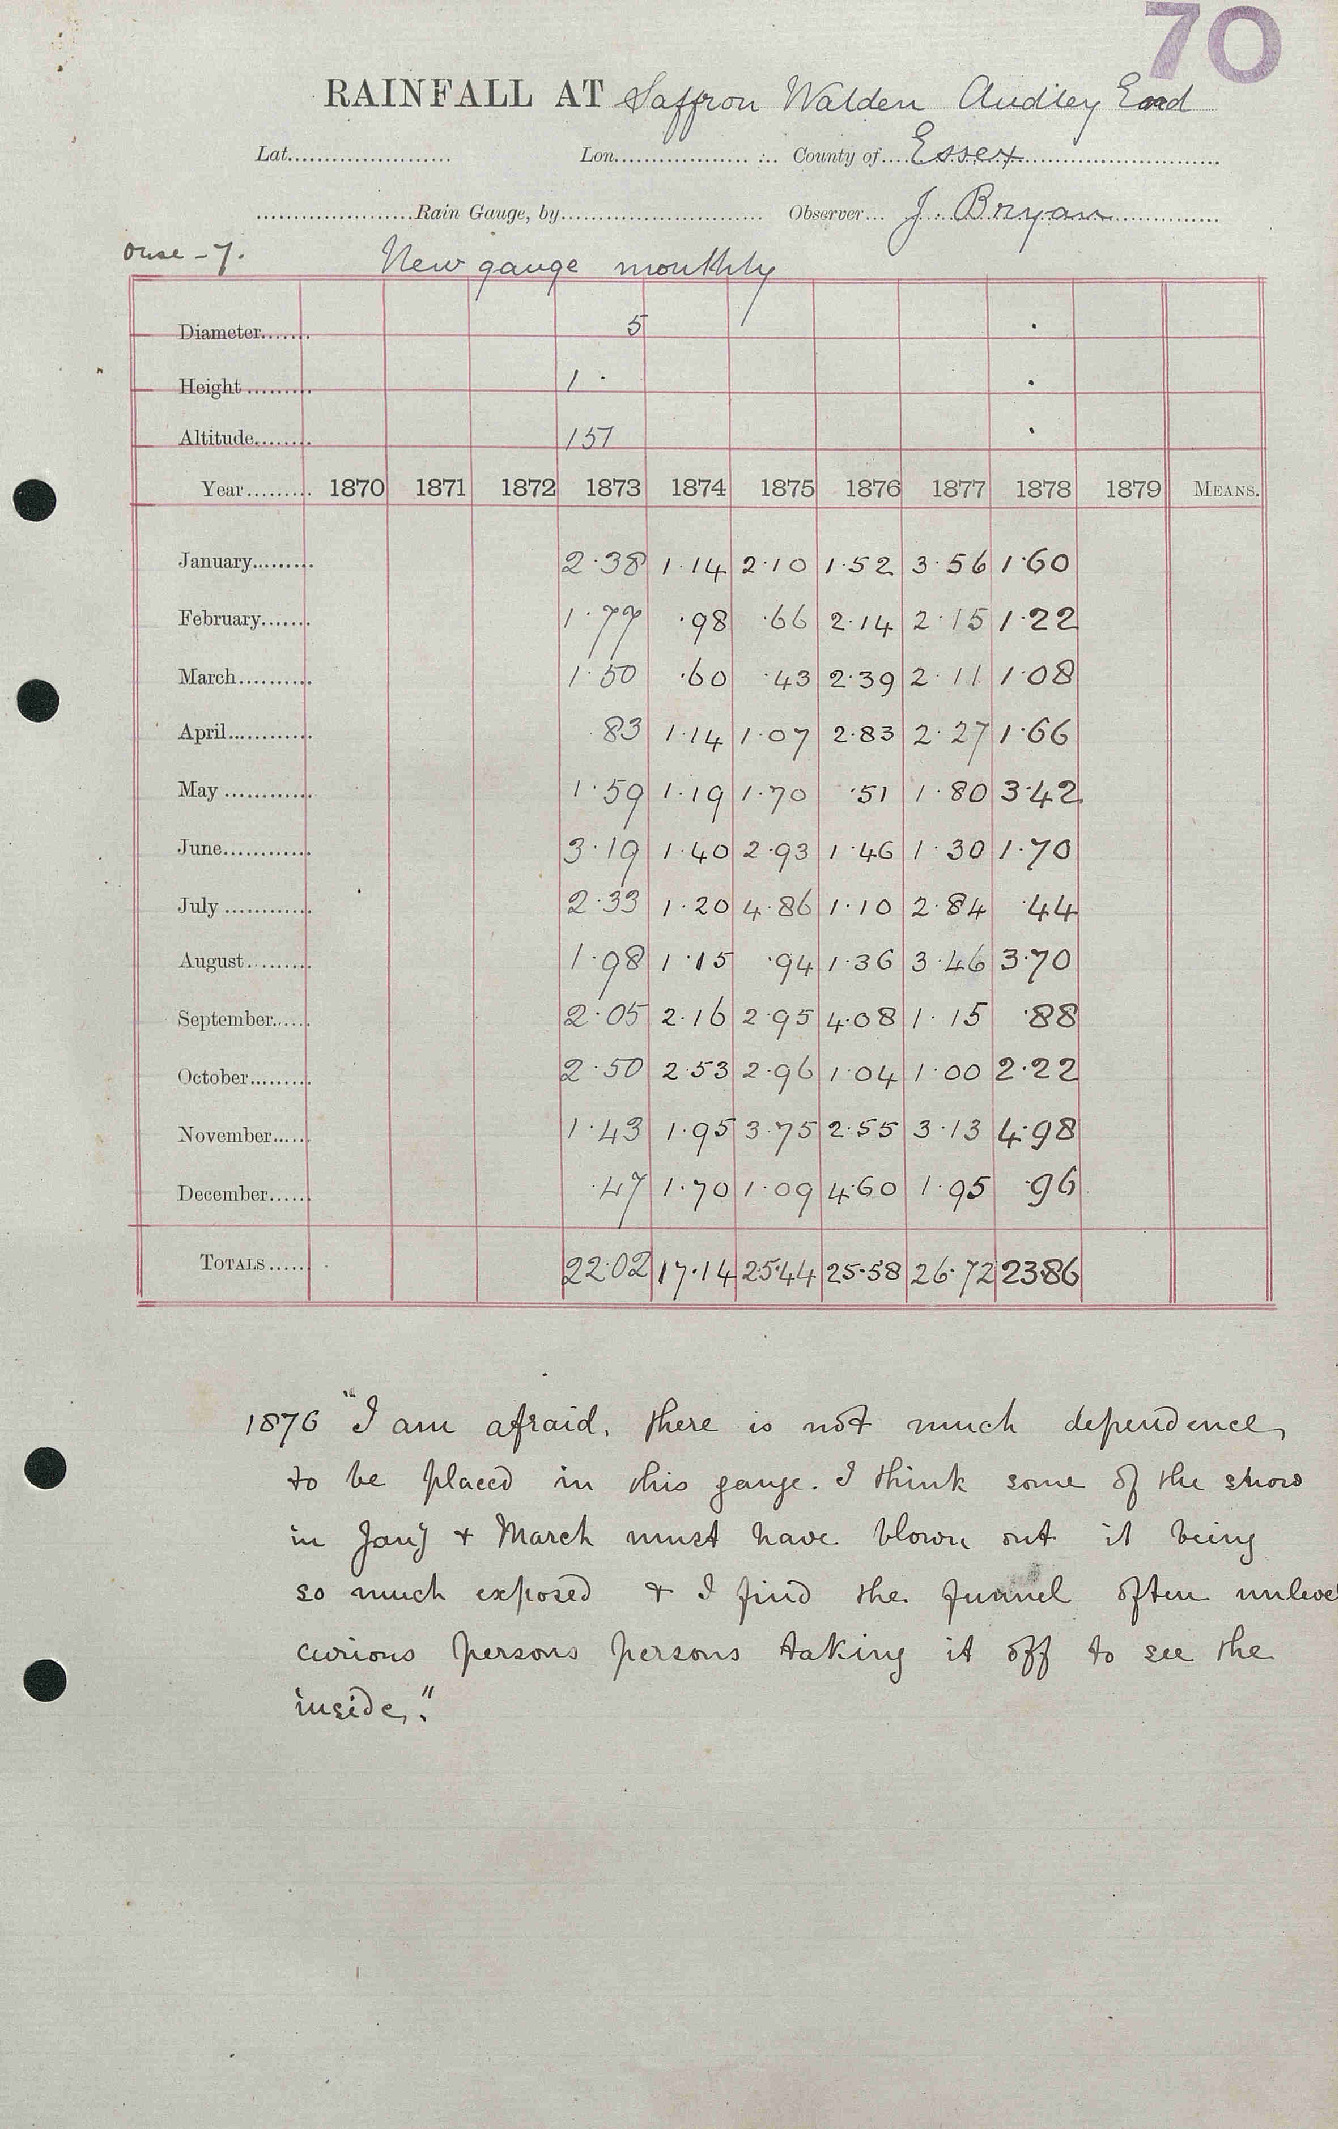 70
RAINFALL AT Saffron Walden Audley End
Lat...................... Lon................... County of....Essex..............................
......................Rain Gauge, by............................. Observer... J. Bryan...............
Ouse - 7. New gauge monthly
Diameter....... 5 .
Height ......... 1 · .
Altitude........ 157 .
Year......... 1870 1871 1872 1873 1874 1875 1876 1877 1878 1879 MEANS.
January......... 2·38 1·14 2·10 1·52 3·56 1·60
February....... 1·77 ·98 ·66 2·14 2·15 1·22
March.......... 1·50 ·60 ·43 2·39 2·11 1·08
April............ ·83 1·14 1·07 2·83 2·27 1·66
May ............ 1·59 1·19 1·70 ·51 1·80 3·42
June............ 3·19 1·40 2·93 1·46 1·30 1·70
July ............ 2·33 1·20 4·86 1·10 2·84 ·44
August......... 1·98 1·15 ·94 1·36 3·46 3·70
September...... 2·05 2·16 2·95 4·08 1·15 ·88
October......... 2·50 2·53 2·96 1·04 1·00 2·22
November...... 1·43 1·95 3·75 2·55 3·13 4·98
December...... ·47 1·70 1·09 4·60 1·95 ·96
TOTALS...... 22·02 17·14 25·44 25·58 26·72 23·86
1876 "I am afraid, there is not much dependence,
to be placed in this gauge. I think some of the snow
in Jany & March must have blown out it being
so much exposed & I find the funnel often unlevel
curious persons persons taking it off to see the
inside,."